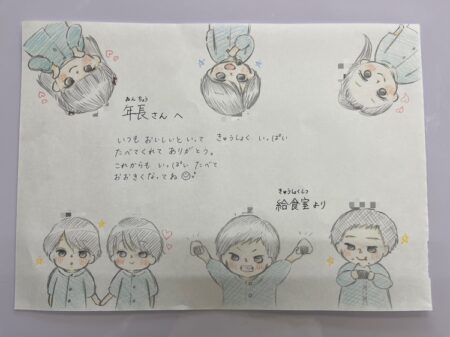 ねんちょう
年長さん へ
いつも おいしいといって きゅうしょく いっぱい
たべてくれて ありがとう。
これからも いっぱい たべて
おおきくなってね
きゅうしょくしつ
給食室より